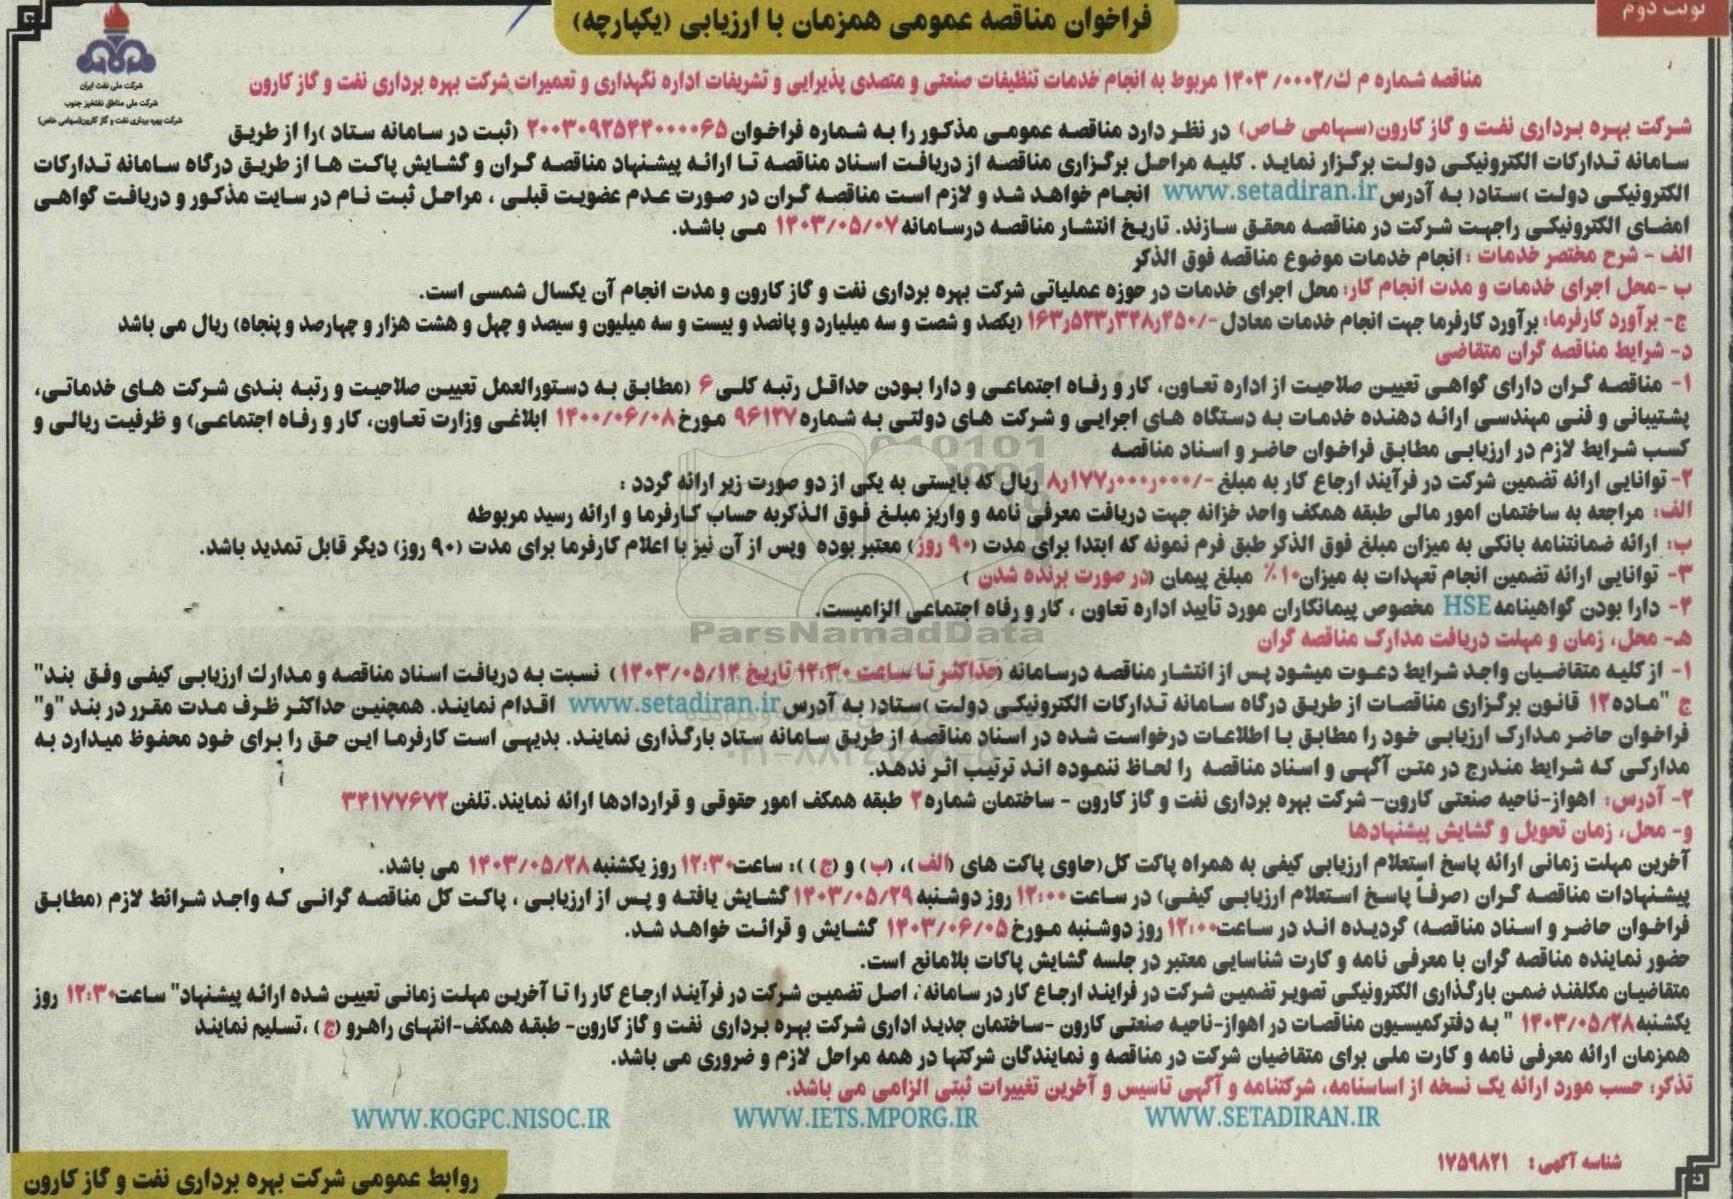 نوبت دوم
فراخوان مناقصه عمومی همزمان با ارزیابی (یکپارچه)
شرکت ملی نفت ایران
شرکت ملی مناطق نفتخیز جنوب
شرکت بهره برداری نفت و گاز کارون(سهامی خاص)
مناقصه شماره م ك/۰۰۰۲/ ۱۴۰۳ مربوط به انجام خدمات تنظیفات صنعتی و متصدی پذیرایی و تشریفات اداره نگهداری و تعمیرات شرکت بهره برداری نفت و گاز کارون
شرکت بهره برداری نفت و گاز کارون(سهامی خاص) در نظر دارد مناقصه عمومی مذکور را به شماره فراخوان ۲۰۰۳۰۹۲۵۴۴۰۰۰۰۶۵ (ثبت در سامانه ستاد )را از طریق
سامانه تدارکات الکترونیکی دولت برگزار نماید . کلیه مراحل برگزاری مناقصه از دریافت اسناد مناقصه تا ارائه پیشنهاد مناقصه گران و گشایش پاکت ها از طریق درگاه سامانه تدارکات
الکترونیکی دولت )ستاد( به آدرس www.setadiran.ir انجام خواهد شد و لازم است مناقصه گران در صورت عدم عضویت قبلی ، مراحل ثبت نام در سایت مذکور و دریافت گواهی
امضای الکترونیکی راجهت شرکت در مناقصه محقق سازند. تاریخ انتشار مناقصه درسامانه ۱۴۰۳/۰۵/۰۷ می باشد.
الف - شرح مختصر خدمات : انجام خدمات موضوع مناقصه فوق الذکر
ب -محل اجرای خدمات و مدت انجام کار: محل اجرای خدمات در حوزه عملیاتی شرکت بهره برداری نفت و گاز کارون و مدت انجام آن یکسال شمسی است.
ج- برآورد کارفرما: برآورد کارفرما جهت انجام خدمات معادل -/۱۶۳٫۵۲۳٫۳۴۸٫۴۵۰ (یکصد و شصت و سه میلیارد و پانصد و بیست و سه میلیون و سیصد و چهل و هشت هزار و چهارصد و پنجاه) ریال می باشد
د- شرایط مناقصه گران متقاضی
۱- مناقصه گران دارای گواهی تعیین صلاحیت از اداره تعاون، کار و رفاه اجتماعی و دارا بودن حداقل رتبه کلی ۶ (مطابق به دستورالعمل تعیین صلاحیت و رتبه بندی شرکت های خدماتی،
پشتیبانی و فنی مهندسی ارائه دهنده خدمات به دستگاه های اجرایی و شرکت های دولتی به شماره ۹۶۱۲۷ مورخ ۱۴۰۰/۰۶/۰۸ ابلاغی وزارت تعاون، کار و رفاه اجتماعی) و ظرفیت ریالی و
کسب شرایط لازم در ارزیابی مطابق فراخوان حاضر و اسناد مناقصه
۲- توانایی ارائه تضمین شرکت در فرآیند ارجاع کار به مبلغ -/۸٫۱۷۷٫۰۰۰٫۰۰۰ ریال که بایستی به یکی از دو صورت زیر ارائه گردد :
الف: مراجعه به ساختمان امور مالی طبقه همکف واحد خزانه جهت دریافت معرفی نامه و واریز مبلغ فوق الذکربه حساب کارفرما و ارائه رسید مربوطه
ب: ارائه ضمانتنامه بانکی به میزان مبلغ فوق الذکر طبق فرم نمونه که ابتدا برای مدت (۹۰ روز) معتبر بوده وپس از آن نیز با اعلام کارفرما برای مدت (۹۰ روز) دیگر قابل تمدید باشد.
۳- توانایی ارائه تضمین انجام تعهدات به میزان ۱۰٪ مبلغ پیمان (در صورت برنده شدن )
۴- دارا بودن گواهینامه HSE مخصوص پیمانکاران مورد تأیید اداره تعاون ، کار و رفاه اجتماعی الزامیست.
هـ- محل، زمان و مهلت دریافت مدارک مناقصه گران
۱- از کلیه متقاضیان واجد شرایط دعوت میشود پس از انتشار مناقصه درسامانه (حداکثر تا ساعت ۱۲:۳۰ تاریخ ۱۴۰۳/۰۵/۱۴ ) نسبت به دریافت اسناد مناقصه و مدارك ارزیابی کیفی وفق بند"
ج "ماده۱۲ قانون برگزاری مناقصات از طریق درگاه سامانه تدارکات الکترونیکی دولت )ستاد( به آدرس www.setadiran.ir اقدام نمایند. همچنین حداکثر ظرف مدت مقرر در بند "و"
فراخوان حاضر مدارک ارزیابی خود را مطابق با اطلاعات درخواست شده در اسناد مناقصه از طریق سامانه ستاد بارگذاری نمایند. بدیهی است کارفرما این حق را برای خود محفوظ میدارد به
مدارکی که شرایط مندرج در متن آگهی و اسناد مناقصه را لحاظ ننموده اند ترتیب اثر ندهد.
۲- آدرس: اهواز-ناحیه صنعتی کارون– شرکت بهره برداری نفت و گاز کارون – ساختمان شماره ۲ طبقه همکف امور حقوقی و قراردادها ارائه نمایند.تلفن ۳۴۱۷۷۶۷۲
و- محل، زمان تحویل و گشایش پیشنهادها
آخرین مهلت زمانی ارائه پاسخ استعلام ارزیابی کیفی به همراه پاکت کل(حاوی پاکت های (الف)، (ب) و (ج) ): ساعت ۱۲:۳۰ روز یکشنبه ۱۴۰۳/۰۵/۲۸ می باشد.
پیشنهادات مناقصه گران (صرفاً پاسخ استعلام ارزیابی کیفی) در ساعت ۱۲:۰۰ روز دوشنبه ۱۴۰۳/۰۵/۲۹ گشایش یافته و پس از ارزیابی ، پاکت کل مناقصه گرانی که واجد شرائط لازم (مطابق
فراخوان حاضر و اسناد مناقصه) گردیده اند در ساعت ۱۲:۰۰ روز دوشنبه مورخ ۱۴۰۳/۰۶/۰۵ گشایش و قرائت خواهد شد.
حضور نماینده مناقصه گران با معرفی نامه و کارت شناسایی معتبر در جلسه گشایش پاکات بلامانع است.
متقاضیان مکلفند ضمن بارگذاری الکترونیکی تصویر تضمین شرکت در فرایند ارجاع کار در سامانه ، اصل تضمین شرکت در فرآیند ارجاع کار را تا آخرین مهلت زمانی تعیین شده ارائه پیشنهاد" ساعت ۱۲:۳۰ روز
یکشنبه ۱۴۰۳/۰۵/۲۸ " به دفترکمیسیون مناقصات در اهواز-ناحیه صنعتی کارون -ساختمان جدید اداری شرکت بهره برداری نفت و گاز کارون- طبقه همکف-انتهای راهرو (ج) ،تسلیم نمایند
همزمان ارائه معرفی نامه و کارت ملی برای متقاضیان شرکت در مناقصه و نمایندگان شرکتها در همه مراحل لازم و ضروری می باشد.
تذکر: حسب مورد ارائه یک نسخه از اساسنامه، شرکتنامه و آگهی تاسیس و آخرین تغییرات ثبتی الزامی می باشد.
WWW.SETADIRAN.IR WWW.IETS.MPORG.IR WWW.KOGPC.NISOC.IR
شناسه آگهی : ۱۷۵۹۸۲۱
روابط عمومی شرکت بهره برداری نفت و گاز کارون
ParsNamadData